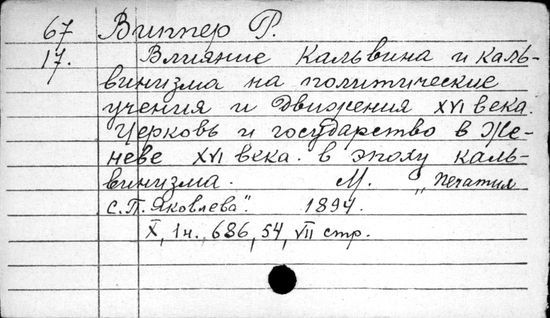 67 Виппер Р.
17. Влияние Кальвина и каль-
винизма на политические
учения и движения XVI века.
Церковь и государство в Же-
неве XVI века. в эпоху каль-
винизма. М. „Печатня
С.П. Яковлева". 1894.
X, 1н., 686, 54, VII стр.